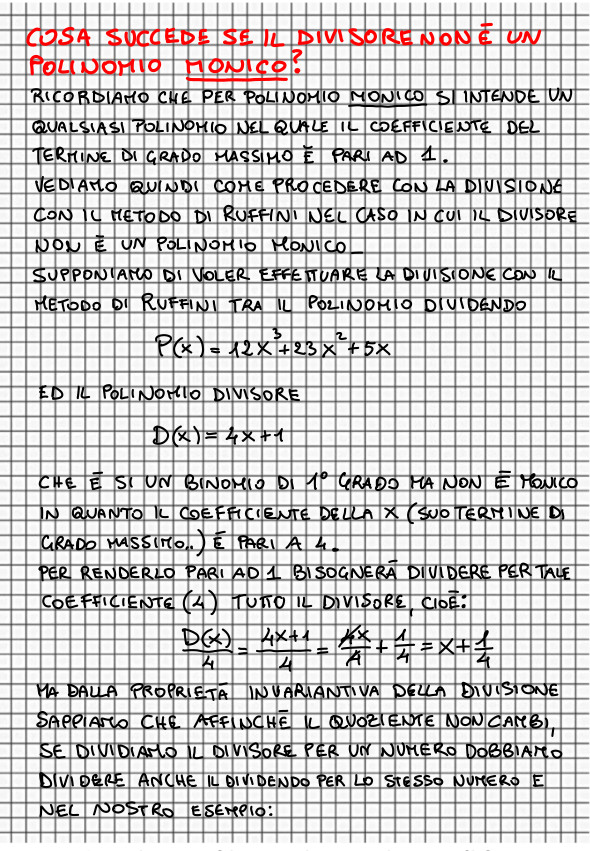 COSA SUCCEDE SE IL DIVISORE NON È UN
POLINOMIO MONICO?
RICORDIAMO CHE PER POLINOMIO MONICO SI INTENDE UN
QUALSIASI POLINOMIO NEL QUALE IL COEFFICIENTE DEL
TERMINE DI GRADO MASSIMO È PARI AD 1.
VEDIAMO QUINDI COME PROCEDERE CON LA DIVISIONE
CON IL METODO DI RUFFINI NEL CASO IN CUI IL DIVISORE
NON È UN POLINOMIO MONICO_
SUPPONIAMO DI VOLER EFFETTUARE LA DIVISIONE CON IL
METODO DI RUFFINI TRA IL POLINOMIO DIVIDENDO
P(x) = 12x³+23x²+5x
ED IL POLINOMIO DIVISORE
D(x) = 4x+1
CHE È SI UN BINOMIO DI 1° GRADO MA NON È MONICO
IN QUANTO IL COEFFICIENTE DELLA X (SUO TERMINE DI
GRADO MASSIMO..) È PARI A 4.
PER RENDERLO PARI AD 1 BISOGNERÀ DIVIDERE PER TALE
COEFFICIENTE (4) TUTTO IL DIVISORE, CIOÈ:
D(x)/4 = 4x+1/4 = 4x/4 + 1/4 = x + 1/4
MA DALLA PROPRIETÀ INVARIANTIVA DELLA DIVISIONE
SAPPIAMO CHE AFFINCHÈ IL QUOZIENTE NON CAMBI,
SE DIVIDIAMO IL DIVISORE PER UN NUMERO DOBBIAMO
DIVIDERE ANCHE IL DIVIDENDO PER LO STESSO NUMERO E
NEL NOSTRO ESEMPIO: